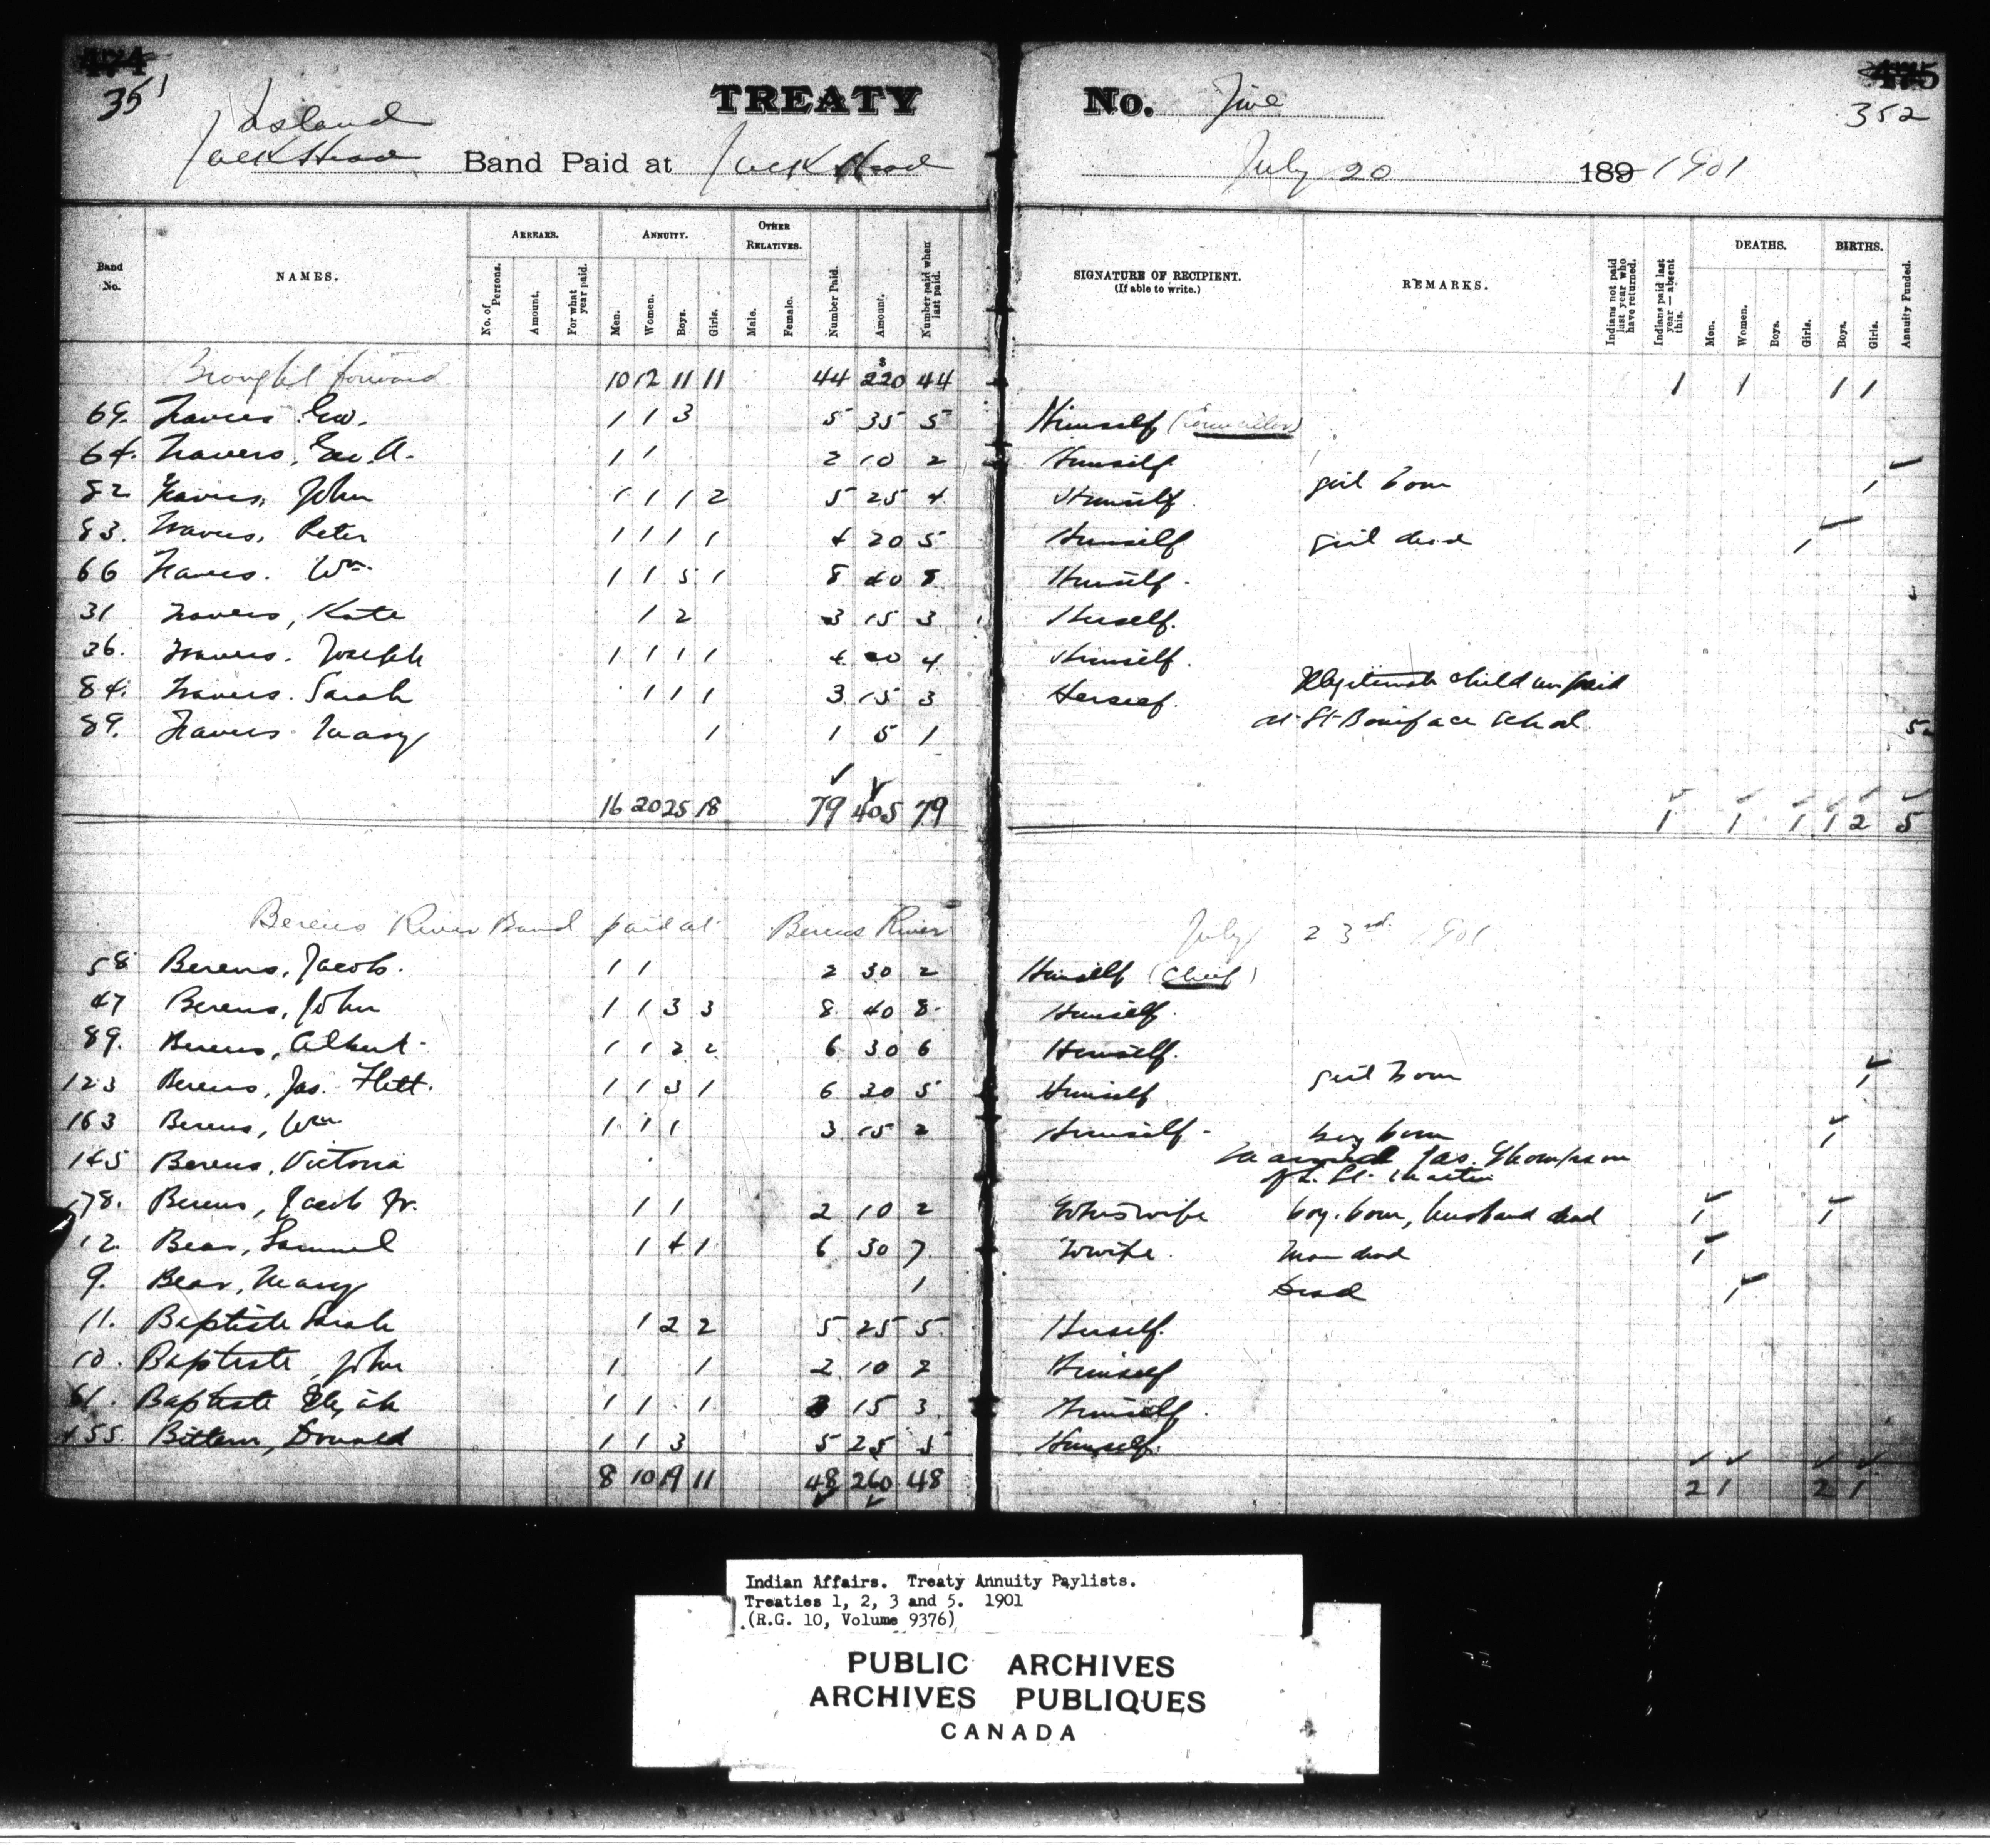 474 TREATY No. Five 475
351 352
Island
Jack Head Band Paid at Jack Head July 20 189 1901
Band No. NAMES. ARREARS. ANNUITY. OTHER RELATIVES. SIGNATURE OF RECIPIENT. (If able to write.) REMARKS. DEATHS. BIRTHS.
No. of Persons. Amount. For what year paid. Men. Women. Boys. Girls. Male. Female. Number Paid. Amount. Number paid when last paid. Indians not paid last year who have returned. Indians paid last year — absent this. Men. Women. Boys. Girls. Boys. Girls. Annuity Funded.
Brought forward 10 12 11 11 44 $220 44 1 1 1 1
69. Travers Geo. 1 1 3 5 35 5 Himself (Councillor)
64. Travers, Geo. A. 1 1 2 10 2 Himself
82 Travers, John 1 1 1 2 5 25 4 Himself girl born 1
83. Travers, Peter 1 1 1 1 4 20 5 Himself girl dead 1
66 Travers. Wm. 1 1 5 1 8 40 8 Himself.
31 Travers, Kate 1 2 3 15 3 Herself.
36. Travers. Joseph 1 1 1 1 4 20 4 Himself.
84. Travers. Sarah 1 1 1 3 15 3 Herself. Illegitimate child unpaid
89. Travers Mary 1 1 5 1 at St Boniface School 5
16 20 25 18 79 405 79 1 1 1 1 2 5
Berens River Band paid at Berens River July 23rd. 1901
58 Berens, Jacob. 1 1 2 30 2 Himself (Chief)
47 Berens, John 1 1 3 3 8 40 8 Himself.
89. Berens, Albert 1 1 2 2 6 30 6 Himself.
123 Berens, Jas. Flett. 1 1 3 1 6 30 5 Himself girl born 1
163 Berens, Wm 1 1 1 3 15 2 Himself boy born 1
145 Berens, Victoria married Jas. Thompson
of L. St. Martin
178. Berens, Jacob Jr. 1 1 2 10 2 wife boy born, husband dead 1 1
12 Bear, Samuel 1 4 1 6 30 7 wife. Man dead 1
9. Bear, Mary 1 Dead 1
11. Baptiste Sarah 1 2 2 5 25 5 Herself.
10. Baptiste, John 1 1 2 10 2 Himself
61. Baptiste Elijah 1 1 1 3 15 3 Himself.
155. Bittern, Donald 1 1 3 5 25 5 Himself.
8 10 19 11 48 260 48 2 1 2 1
Indian Affairs. Treaty Annuity Paylists.
Treaties 1, 2, 3 and 5. 1901
(R.G. 10, Volume 9376)
PUBLIC ARCHIVES
ARCHIVES PUBLIQUES
CANADA